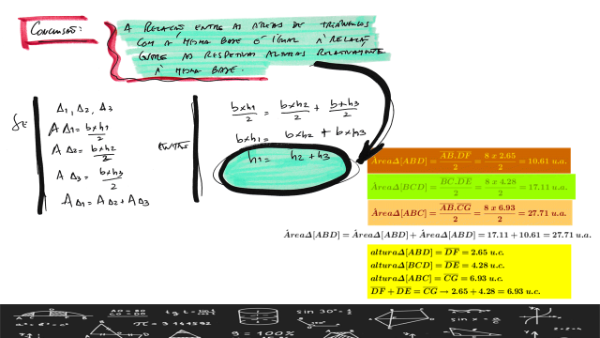 Conclusão:
A RELAÇÃO ENTRE AS ÁREAS DE TRIÂNGULOS
COM A MESMA BASE É IGUAL À RELAÇÃO
ENTRE AS RESPETIVAS ALTURAS RELATIVAMENTE
À MESMA BASE.
SE
Δ1, Δ2, Δ3
A Δ1 = b x h1 / 2
A Δ2 = b x h2 / 2
A Δ3 = b x h3 / 2
A Δ1 = A Δ2 + A Δ3
ENTÃO
b x h1 / 2 = b x h2 / 2 + b x h3 / 2
b x h1 = b x h2 + b x h3
h1 = h2 + h3
ÀreaΔ[ABD] = AB.DF / 2 = 8 x 2.65 / 2 = 10.61 u.a.
ÀreaΔ[BCD] = BC.DE / 2 = 8 x 4.28 / 2 = 17.11 u.a.
ÀreaΔ[ABC] = AB.CG / 2 = 8 x 6.93 / 2 = 27.71 u.a.
ÀreaΔ[ABD] = ÀreaΔ[ABD] + ÀreaΔ[ABD] = 17.11 + 10.61 = 27.71 u.a.
alturaΔ[ABD] = DF = 2.65 u.c.
alturaΔ[BCD] = DE = 4.28 u.c.
alturaΔ[ABC] = CG = 6.93 u.c.
DF + DE = CG → 2.65 + 4.28 = 6.93 u.c.
sin 30° = ½
π = 3.141592
y = 100%